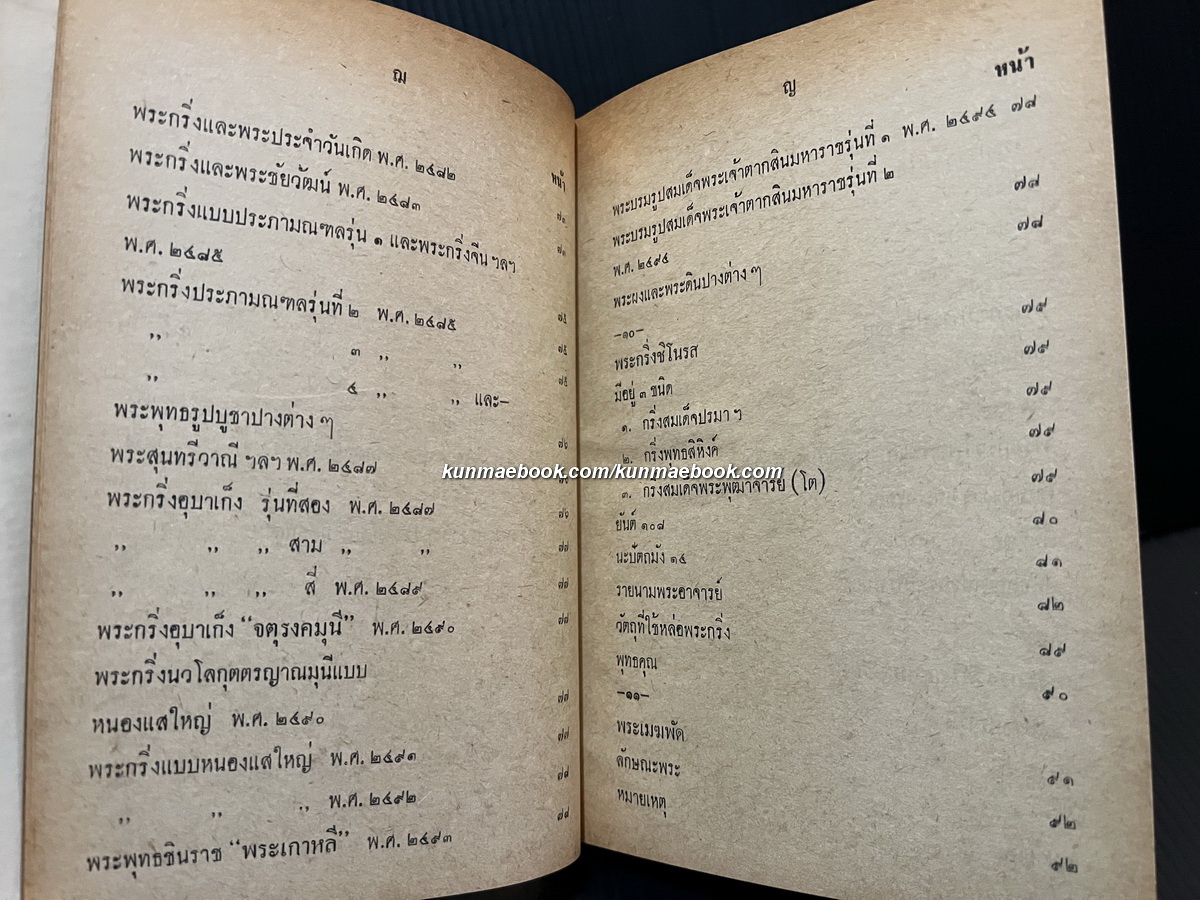 ฌ
หน้า
พระกริ่งและพระประจำวันเกิด พ.ศ. ๒๔๘๒
พระกริ่งและพระชัยวัฒน์ พ.ศ. ๒๔๘๓
พระกริ่งแบบประภามณฑลรุ่น ๑ และพระกริ่งจีน ฯลฯ
พ.ศ. ๒๔๘๕
พระกริ่งประภามณฑลรุ่นที่ ๒ พ.ศ. ๒๔๘๕
,, ๓ ,, ,,
,, ๔ ,, ,, และ–
พระพุทธรูปบูชาปางต่าง ๆ
พระสุนทรีวาณี ฯลฯ พ.ศ. ๒๔๘๗
พระกริ่งอุบาเก็ง รุ่นที่สอง พ.ศ. ๒๔๘๗ ๗๖
,, ,, ,, สาม ,, ,, ๗๗
,, ,, ,, สี่ พ.ศ. ๒๔๘๙ ๗๗
พระกริ่งอุบาเก็ง “จตุรงคมุนี” พ.ศ. ๒๔๙๐ ๗๗
พระกริ่งนวโลกุตตรญาณมุนีแบบ
หนองแสใหญ่ พ.ศ. ๒๔๙๐ ๗๗
พระกริ่งแบบหนองแสใหญ่ พ.ศ. ๒๔๙๑ ๗๗
,, ,, ,, พ.ศ. ๒๔๙๒ ๗๘
พระพุทธชินราช “พระเกาหลี” พ.ศ. ๒๔๙๓ ๗๘
ญ
หน้า
พระบรมรูปสมเด็จพระเจ้าตากสินมหาราชรุ่นที่ ๑ พ.ศ. ๒๔๙๔ ๗๘
พระบรมรูปสมเด็จพระเจ้าตากสินมหาราชรุ่นที่ ๒
พ.ศ. ๒๔๙๕ ๗๘
พระผงและพระดินปางต่าง ๆ ๗๘
–๑๐–
พระกริ่งชิโนรส ๗๙
มีอยู่ ๓ ชนิด ๗๙
๑. กริ่งสมเด็จปรมา ฯ ๗๙
๒. กริ่งพุทธสิหิงค์ ๗๙
๓. กริ่งสมเด็จพระพุฒาจารย์ (โต) ๗๙
ยันต์ ๑๐๘ ๘๐
นะปัตถมัง ๑๔ ๘๑
รายนามพระอาจารย์ ๘๒
วัตถุที่ใช้หล่อพระกริ่ง ๘๙
พุทธคุณ ๙๐
–๑๑–
พระเมฆพัด ๙๑
ลักษณะพระ ๙๒
หมายเหตุ ๙๒
kunmaebook.com/kunmaebook.com